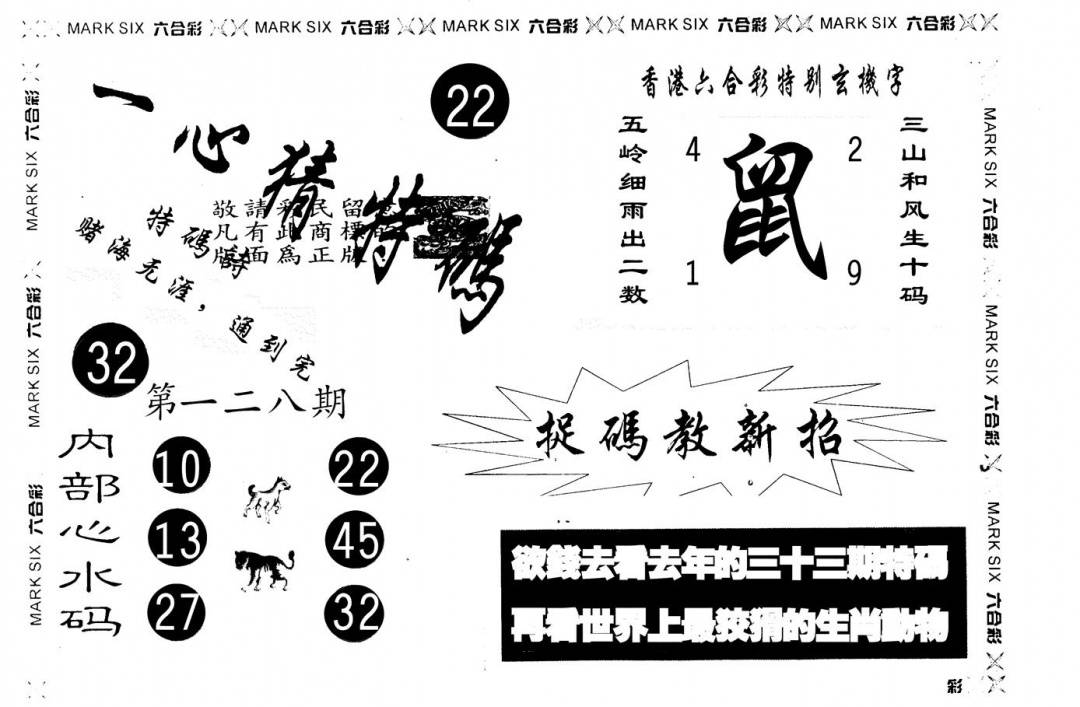 MARK SIX 六合彩 MARK SIX 六合彩 MARK SIX 六合彩 MARK SIX 六合彩 MARK SIX 六合彩
MARK SIX 六合彩
MARK SIX 六合彩
MARK SIX 六合彩
一心猜特碼
22
敬請彩民留意
凡有此商標的
版面為正版
特碼詩
赌海无涯，通到完
32
第一二八期
内部心水码
10
22
13
45
27
32
香港六合彩特别玄機字
五岭细雨出二数
4
2
鼠
1
9
三山和风生十码
捉碼教新招
欲錢去看去年的三十三期特碼
再看世界上最狡猾的生肖動物
MARK SIX 六合彩
MARK SIX 六合彩
MARK SIX 六合彩
彩